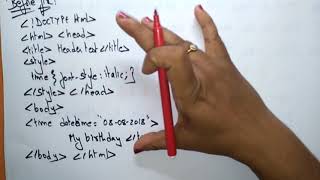 <!DOCTYPE html>
<html> <head>
<title> Header text </title>
<style>
time { font-style: italic; }
</style> </head>
<body>
<time datetime="08-08-2018">
My birthday </t
</body> </html>